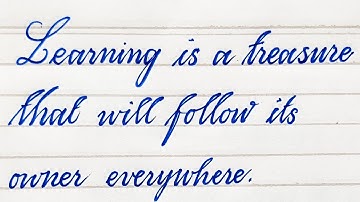 Learning is a treasure
that will follow its
owner everywhere.